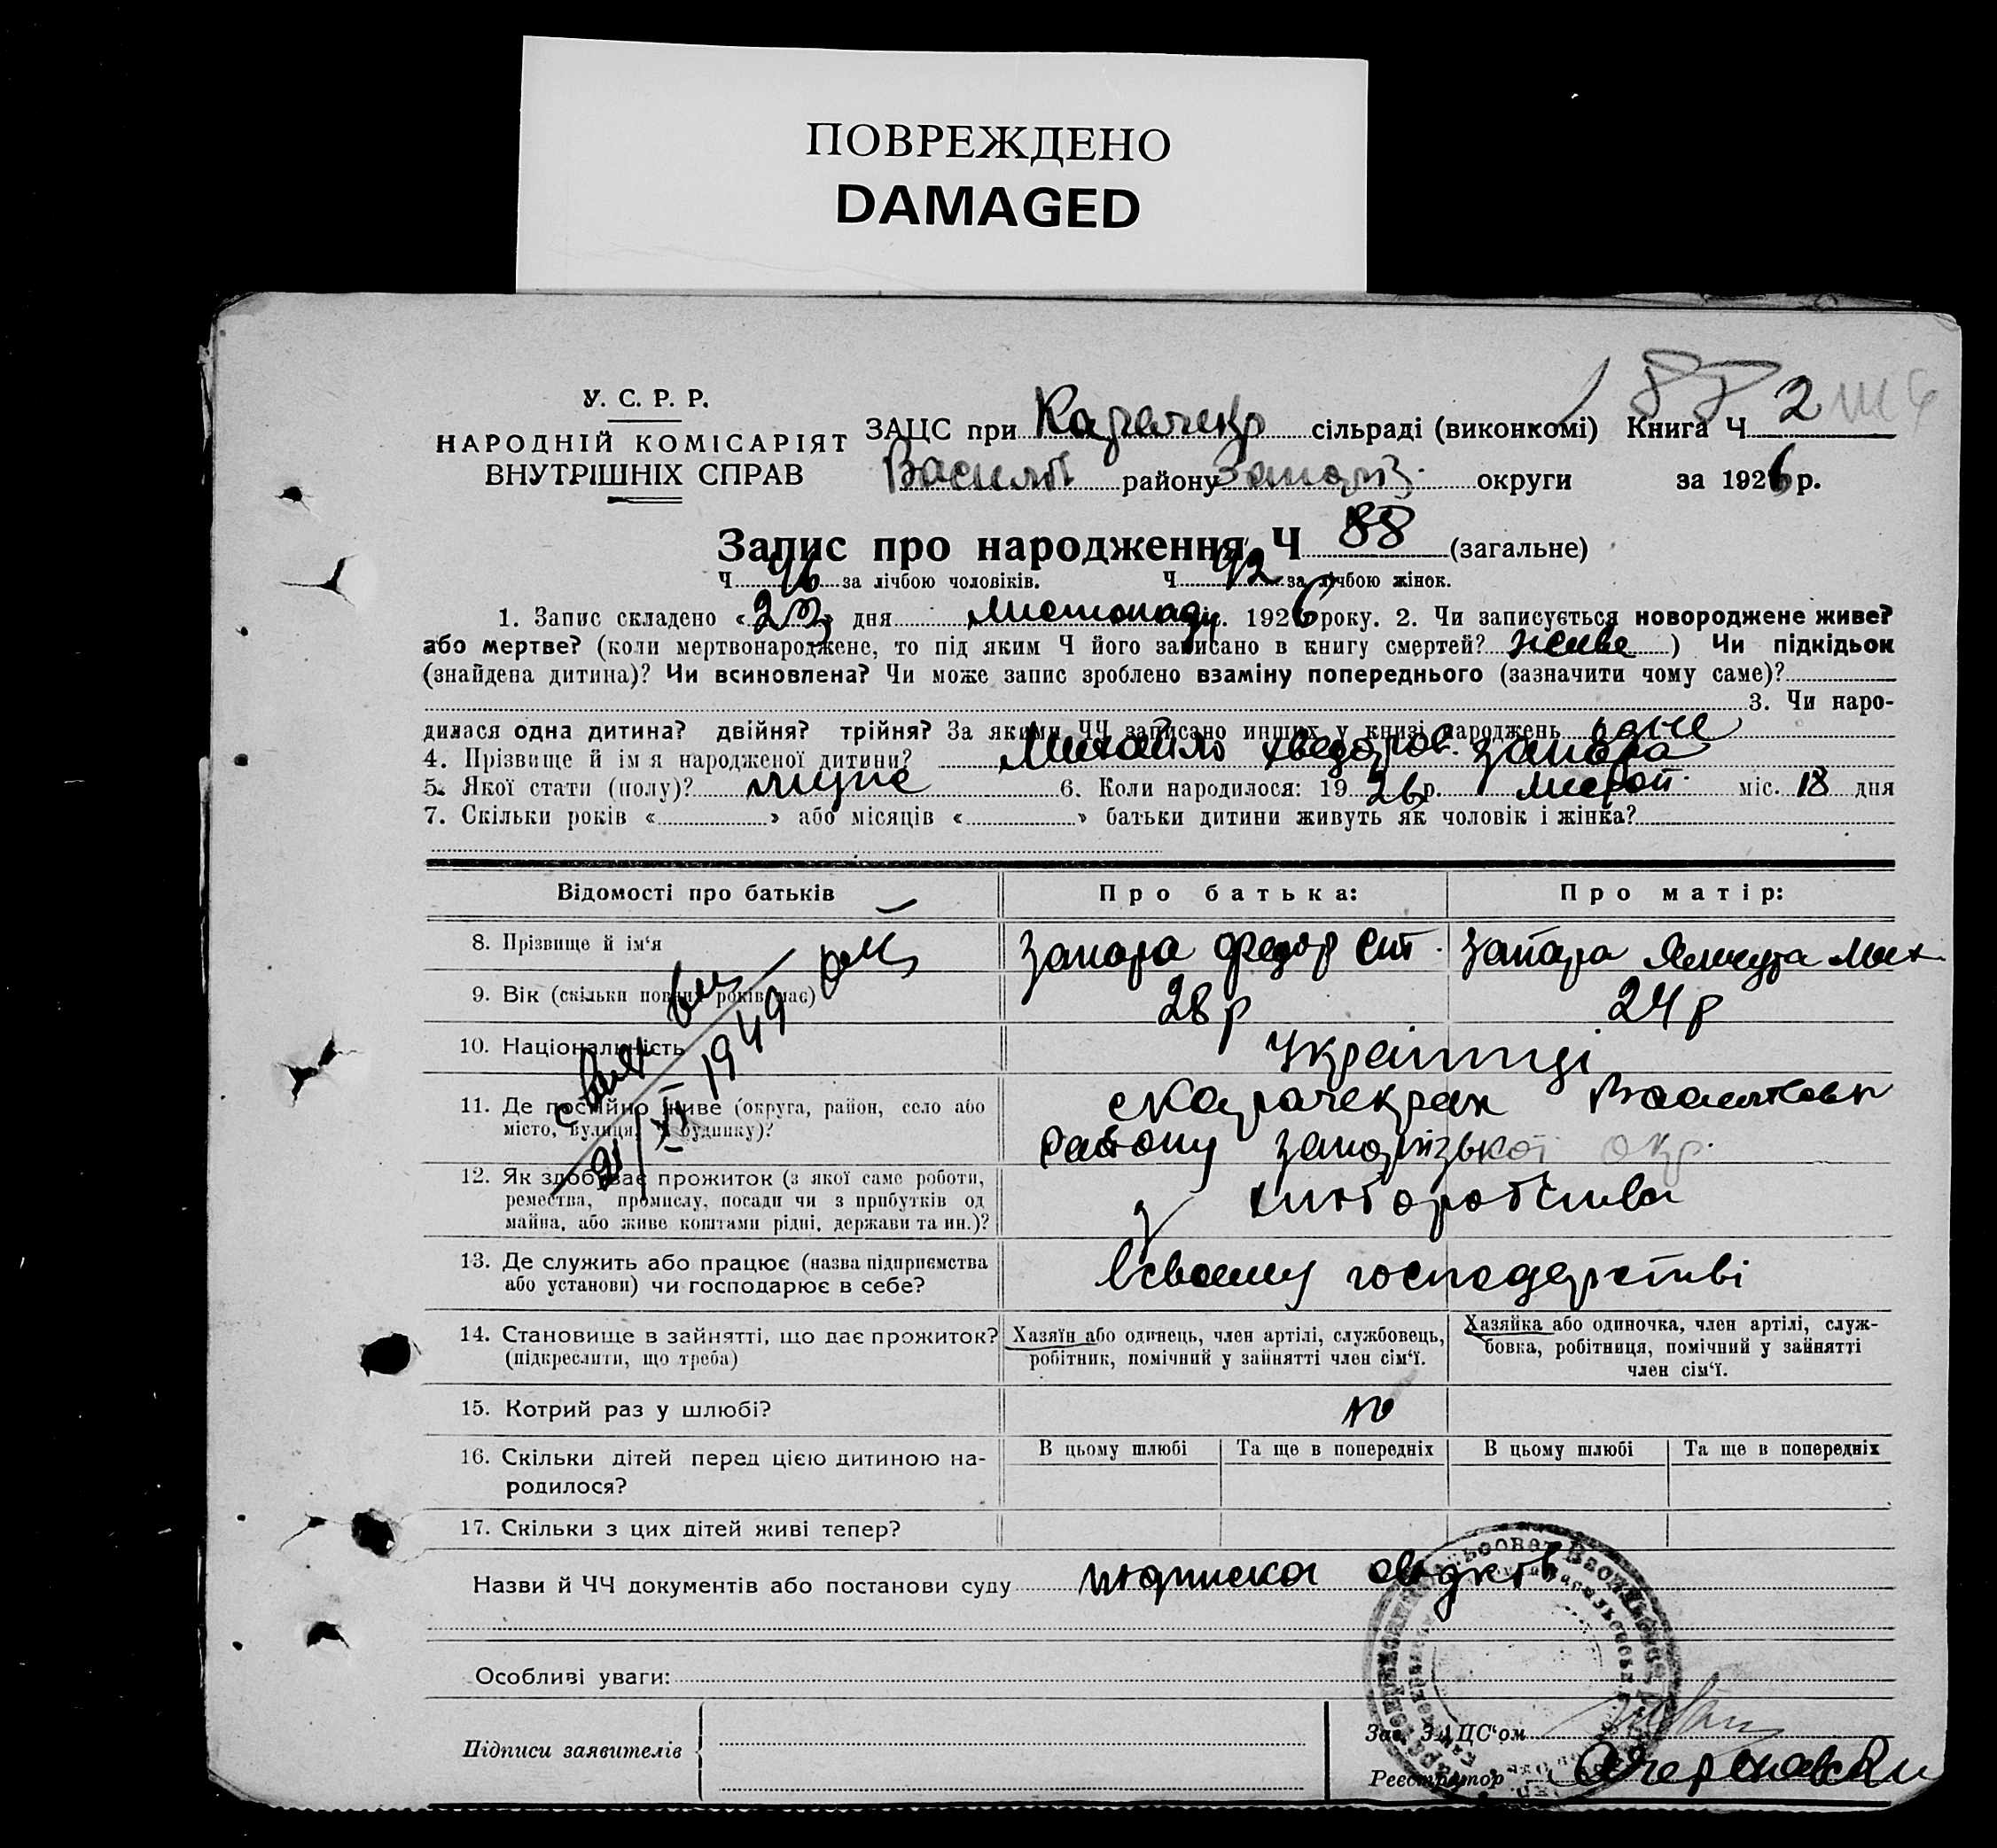 ПОВРЕЖДЕНО
DAMAGED
88 2
У. С. Р. Р.
НАРОДНІЙ КОМІСАРІЯТ
ВНУТРІШНІХ СПРАВ
ЗАЦС при Карачекр сільраді (виконкомі) Книга Ч
Василів району Запоріз. округи за 1926 р.
Запис про народження Ч 88 (загальне)
Ч 46 за лічбою чоловіків. Ч 42 за лічбою жінок.
1. Запис складено «23» дня листопаду 1926 року. 2. Чи записується новороджене живе?
або мертве? (коли мертвонароджене, то під яким Ч його записано в книгу смертей? живе ) Чи підкідьок
(знайдена дитина)? Чи всиновлена? Чи може запис зроблено взаміну попереднього (зазначити чому саме)?
3. Чи наро-
дилася одна дитина? двійня? трійня? За якими ЧЧ записано инших у книзі народжень одне
4. Прізвище й ім'я народженої дитини? Михайло Хведоров. Запара
5. Якої стати (полу)? мужс 6. Коли народилося: 1926 р. листоп. міс. 18 дня
7. Скільки років « » або місяців « » батьки дитини живуть як чоловік і жінка?
Відомості про батьків Про батька: Про матір:
8. Прізвище й ім'я Запара Федор Запара Мих.
9. Вік (скільки повних років має) 28 р 24 р
10. Національність Українці
11. Де постійно живе (округа, район, село або
місто, вулиця, Ч будинку)?
с Карачекрак Василівськ
району запорізької окр.
21/XI 1949
12. Як здобуває прожиток (з якої саме роботи,
ремества, промислу, посади чи з прибутків од
майна, або живе коштами рідні, держави та ин.)?
з хліборобства
13. Де служить або працює (назва підприємства
або установи) чи господарює в себе?
в своєму господарстві
14. Становище в зайнятті, що дає прожиток?
(підкреслити, що треба)
Хазяїн або одинець, член артілі, службовець,
робітник, помічний у зайнятті член сім'ї.
Хазяйка або одиночка, член артілі, служ-
бовка, робітниця, помічний у зайнятті
член сім'ї.
15. Котрий раз у шлюбі?
16. Скільки дітей перед цією дитиною на-
родилося?
В цьому шлюбі Та ще в попередніх В цьому шлюбі Та ще в попередніх
17. Скільки з цих дітей живі тепер?
Назви й ЧЧ документів або постанови суду підписка свідків
Особливі уваги:
Підписи заявителів
Зав. ЗАЦС'ом
Реєстратор